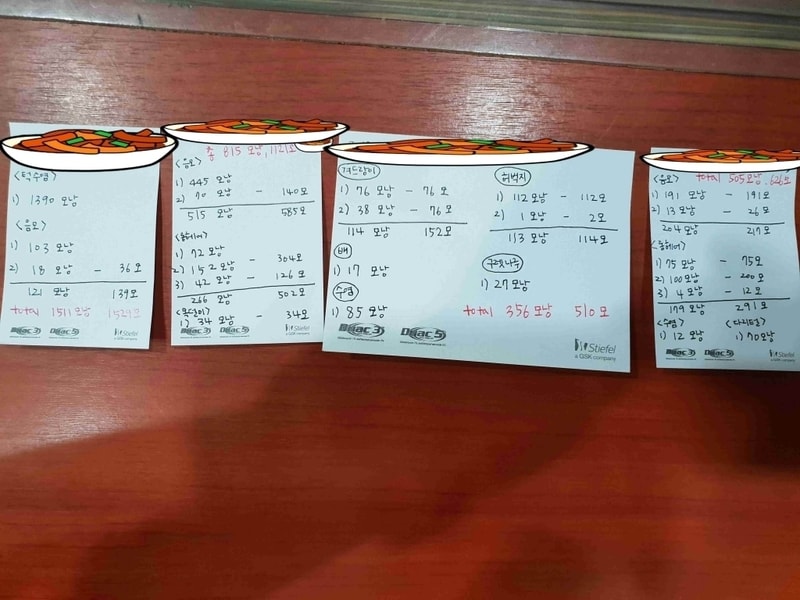 <턱수염>
1) 1390 모낭
<음모>
1) 103 모낭
2) 18 모낭 - 36모
121 모낭 139모
total 1511모낭 1529모
총 815 모낭, 1121모
<음모>
1) 445 모낭
2) 70 모낭 - 140모
515 모낭 585모
1) 72 모낭
2) 152 모낭 - 304모
3) 42 모낭 - 126모
266 모낭 502모
1) 34 모낭 - 34모
Duac 3 Duac 5
Stiefel
a GSK company
겨드랑이
1) 76 모낭 - 76모
2) 38 모낭 - 76모
114 모낭 152모
배
1) 17 모낭
수염
1) 85 모낭
허벅지
1) 112 모낭 - 112모
2) 1 모낭 - 2모
113 모낭 114모
구렛나루
1) 27 모낭
total 356 모낭 510모
Duac 3 Duac 5
Stiefel
a GSK company
total 505모낭, 626모
<음모>
1) 191 모낭 - 191모
2) 13 모낭 - 26모
204 모낭 217모
1) 75 모낭 - 75모
2) 100 모낭 - 200모
3) 4 모낭 - 12모
179 모낭 291모
<수염> <다리털>
1) 12 모낭 1) 70모낭
Duac 3 Duac 5
Stiefel
a GSK company